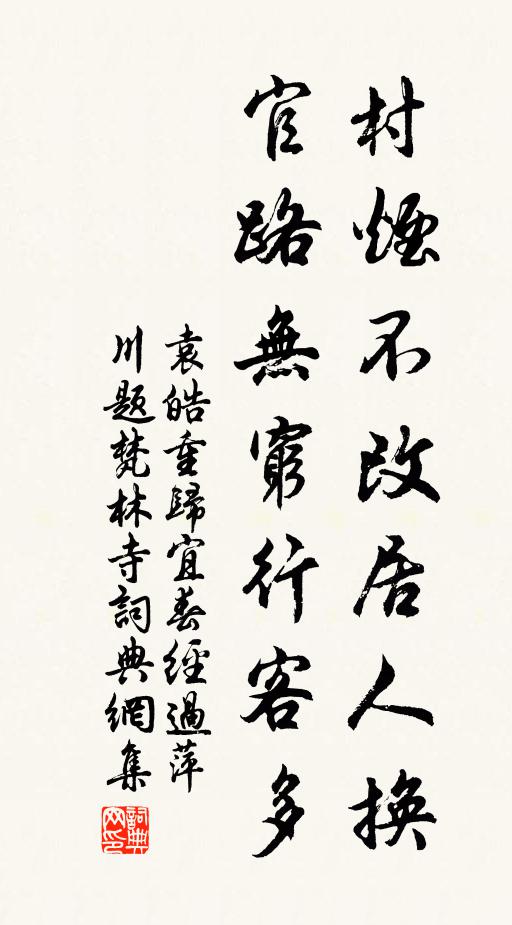 村煙不改居人換
官路無窮行客多
袁皓重歸宜春經過萍
川題梵林寺詞典網集
詞典網印